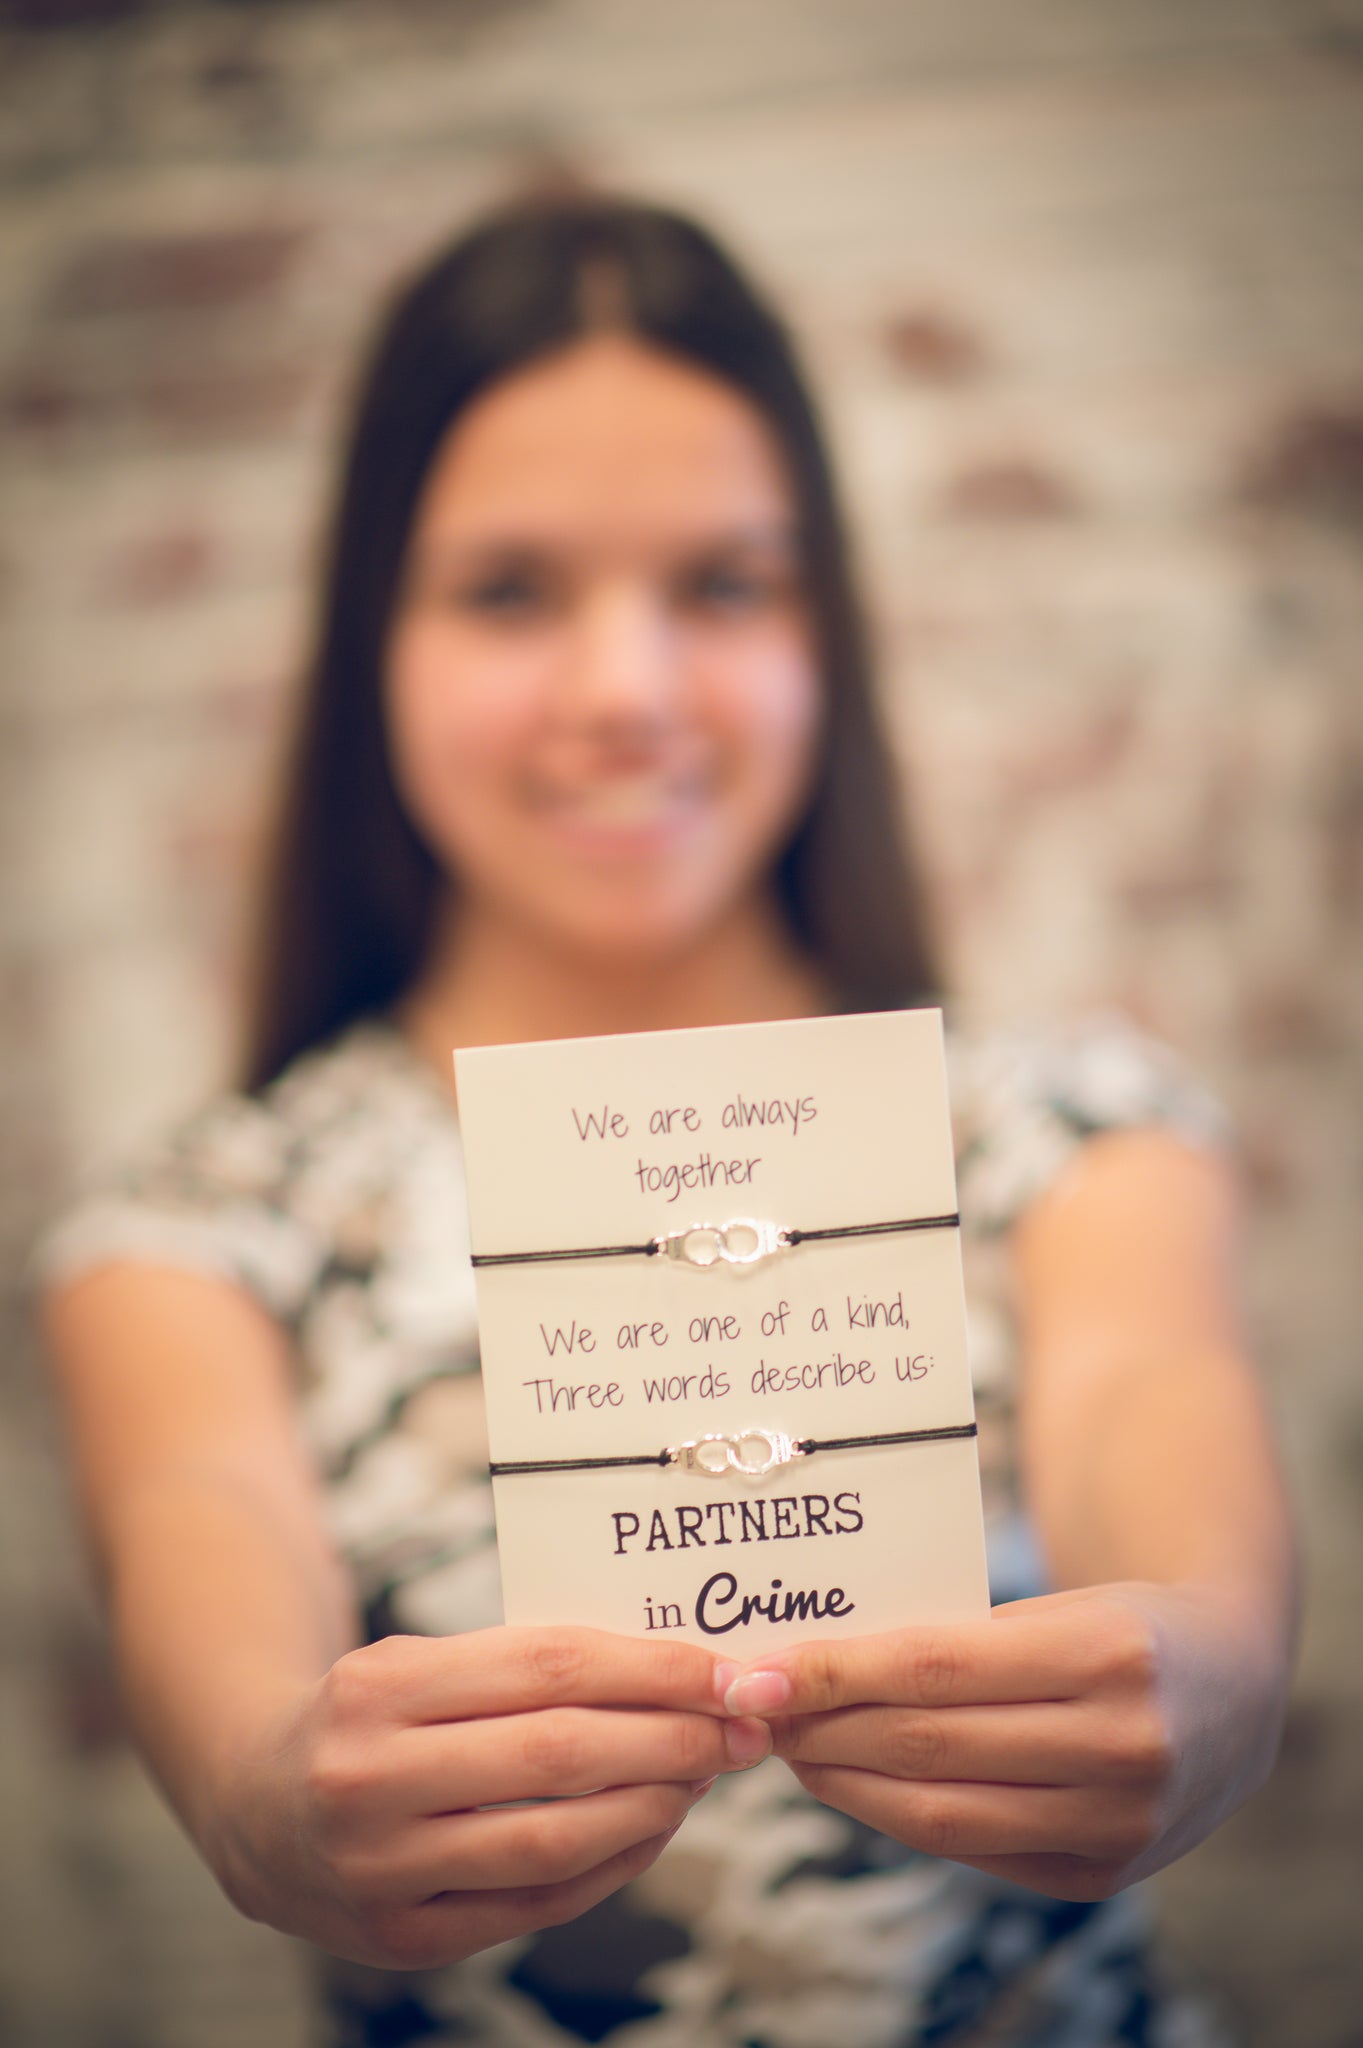 We are always
together
We are one of a kind,
Three words describe us:
PARTNERS
in Crime